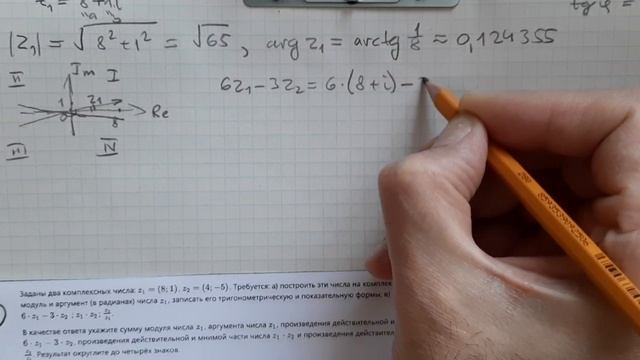 z₁ = 8+1i
"a" "b"
|z₁| = √8²+1² = √65, arg z₁ = arctg 1/8 ≈ 0,124355
tg φ =
II Im I
1 z₁ Re
0 8
III IV
6z₁-3z₂ = 6·(8+i) -
Заданы два комплексных числа: z₁ = (8; 1), z₂ = (4; −5). Требуется: а) построить эти числа на комплек
модуль и аргумент (в радианах) числа z₁, записать его тригонометрическую и показательную формы; в)
6 · z₁ − 3 · z₂ ; z₁ · z₂;
В качестве ответа укажите сумму модуля числа z₁, аргумента числа z₁, произведения действительной и
6 · z₁ − 3 · z₂, произведения действительной и мнимой части числа z₁ · z₂ и произведения действительной
Результат округлите до четырёх знаков.